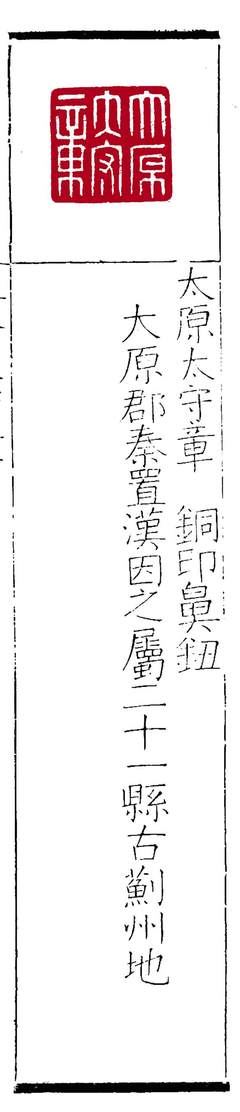 大原
大守
章
太原太守章 銅印鼻鈕
大原郡秦置漢因之屬二十一縣古薊州地